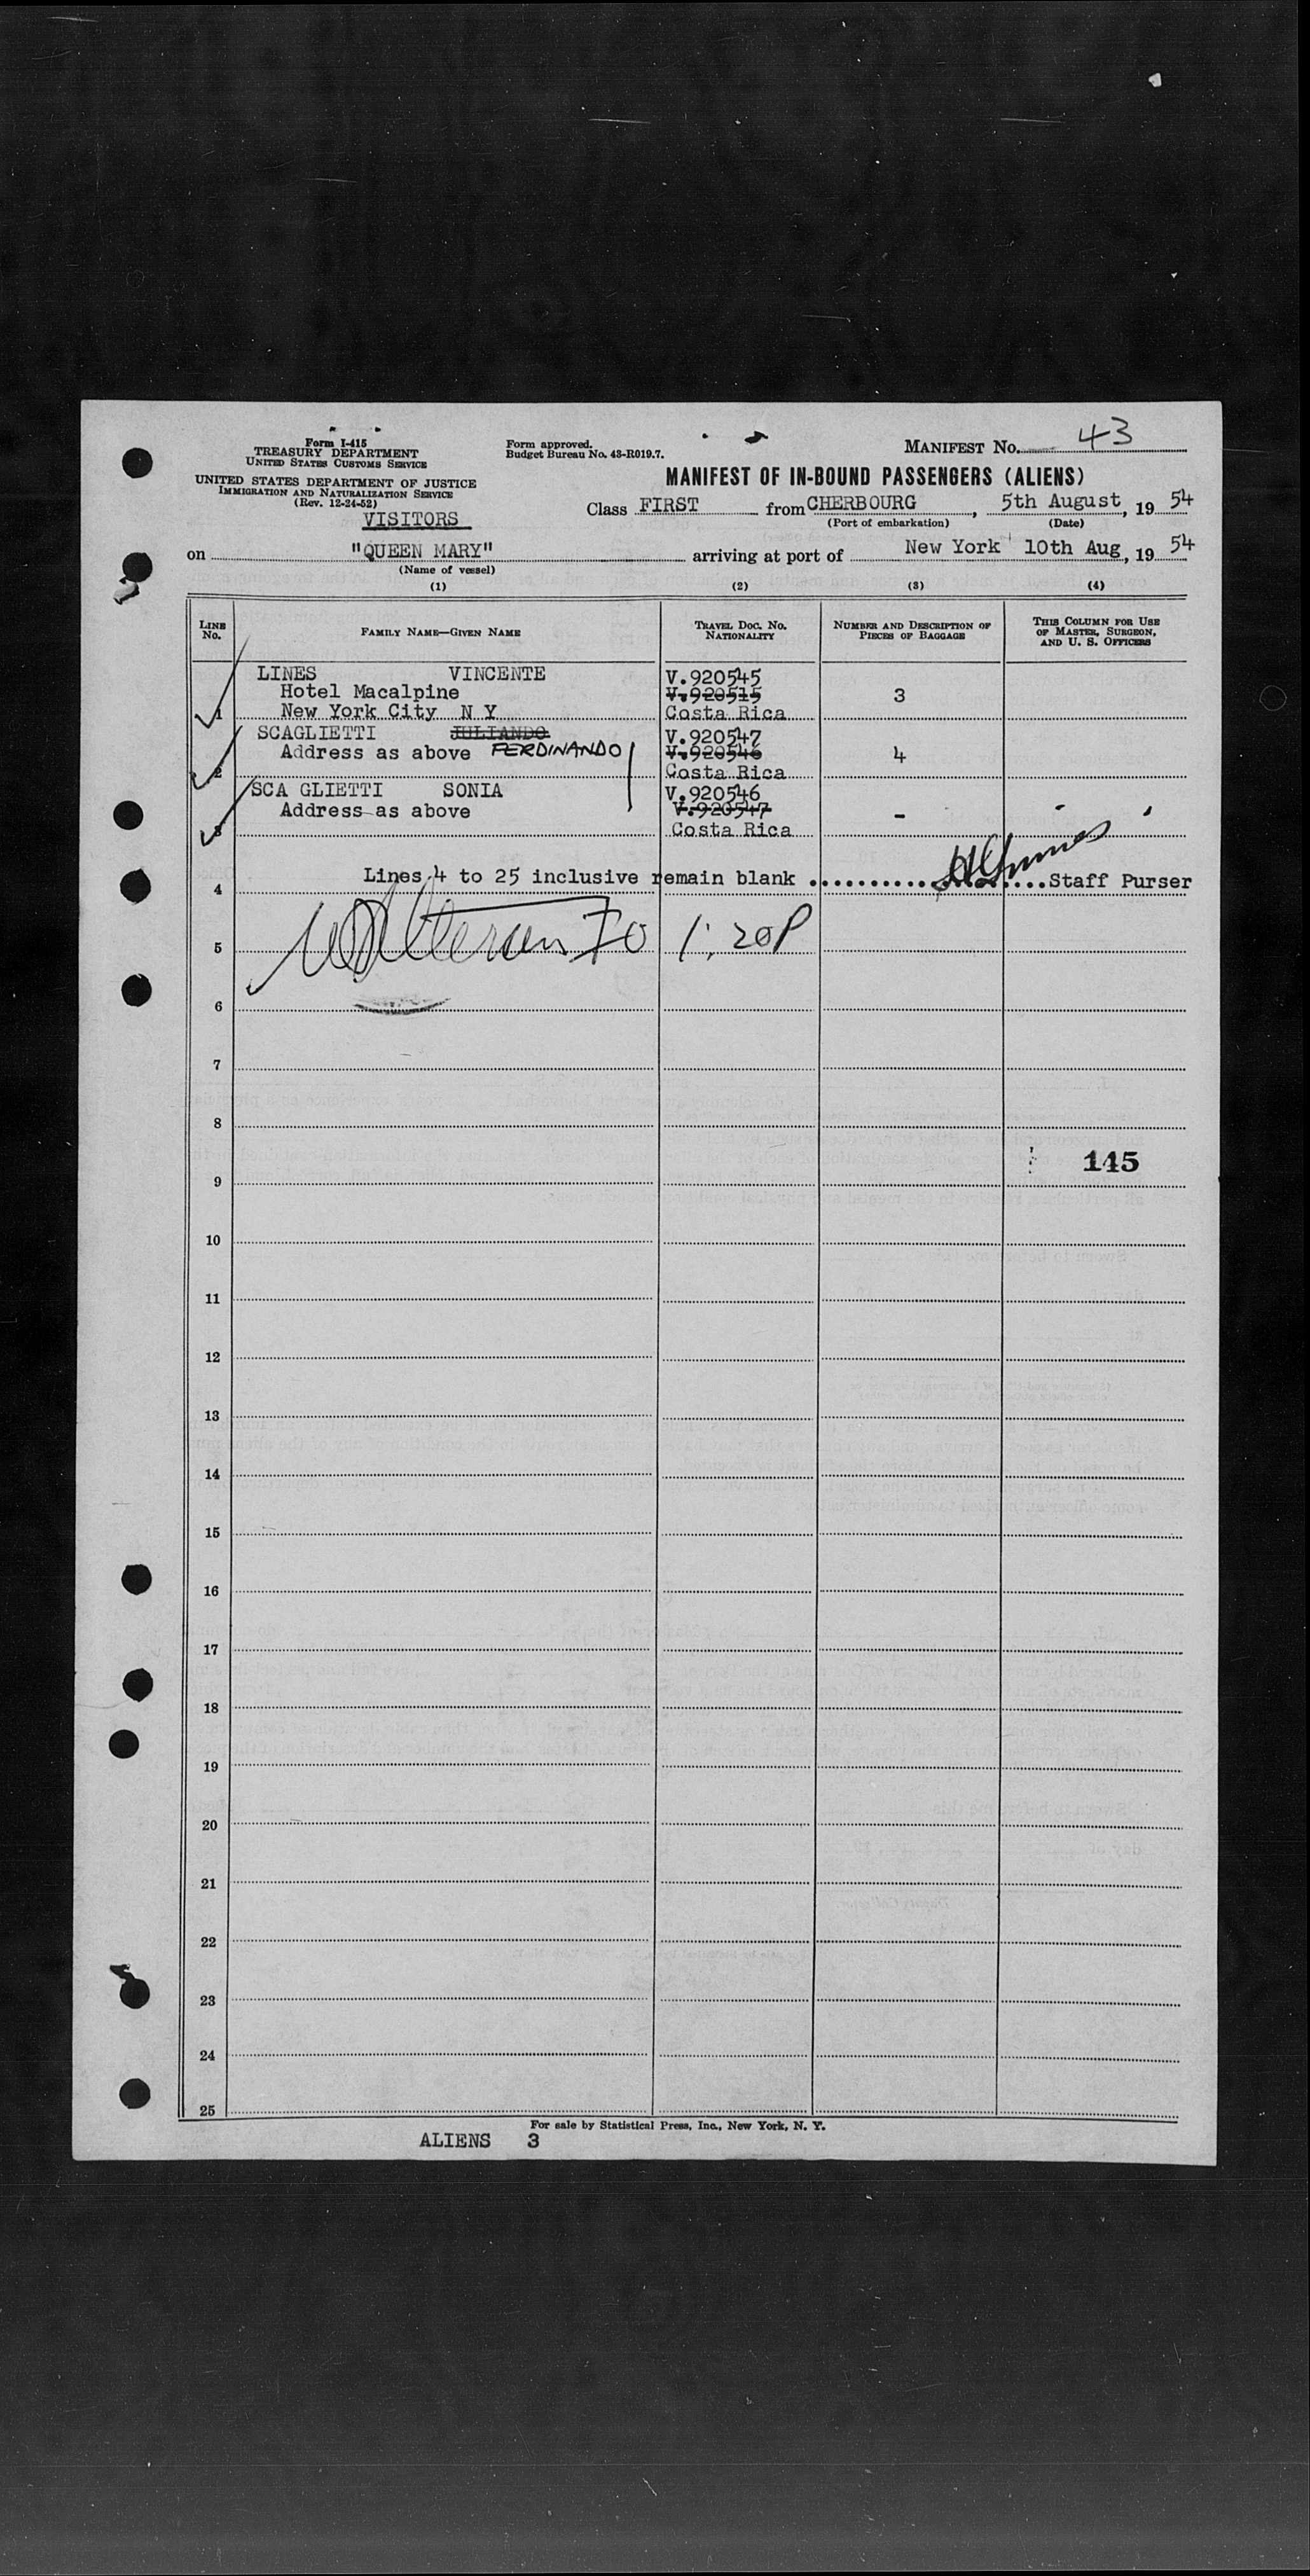 Form I-415
TREASURY DEPARTMENT
UNITED STATES CUSTOMS SERVICE
UNITED STATES DEPARTMENT OF JUSTICE
IMMIGRATION AND NATURALIZATION SERVICE
(Rev. 12-24-52)
VISITORS
Form approved.
Budget Bureau No. 43-R019.7.
MANIFEST NO. 43
MANIFEST OF IN-BOUND PASSENGERS (ALIENS)
Class FIRST from CHERBOURG, 5th August, 19 54
(Port of embarkation) (Date)
on "QUEEN MARY" arriving at port of New York 10th Aug, 19 54
(Name of vessel)
(1) (2) (3) (4)
LINE NO. FAMILY NAME—GIVEN NAME TRAVEL DOC. NO. NATIONALITY NUMBER AND DESCRIPTION OF PIECES OF BAGGAGE THIS COLUMN FOR USE OF MASTER, SURGEON, AND U. S. OFFICERS
LINES VINCENTE V.920545
Hotel Macalpine V.920515 3
1 New York City N Y Costa Rica
SCAGLIETTI JULIANDO V.920547
Address as above FERDINANDO V.920546 4
2 Costa Rica
SCA GLIETTI SONIA V.920546
Address as above V.920547 -
3 Costa Rica
4 Lines 4 to 25 inclusive remain blank ....................Staff Purser
5 1:20P
6
7
8
145
9
10
11
12
13
14
15
16
17
18
19
20
21
22
23
24
25
For sale by Statistical Press, Inc., New York, N. Y.
ALIENS 3